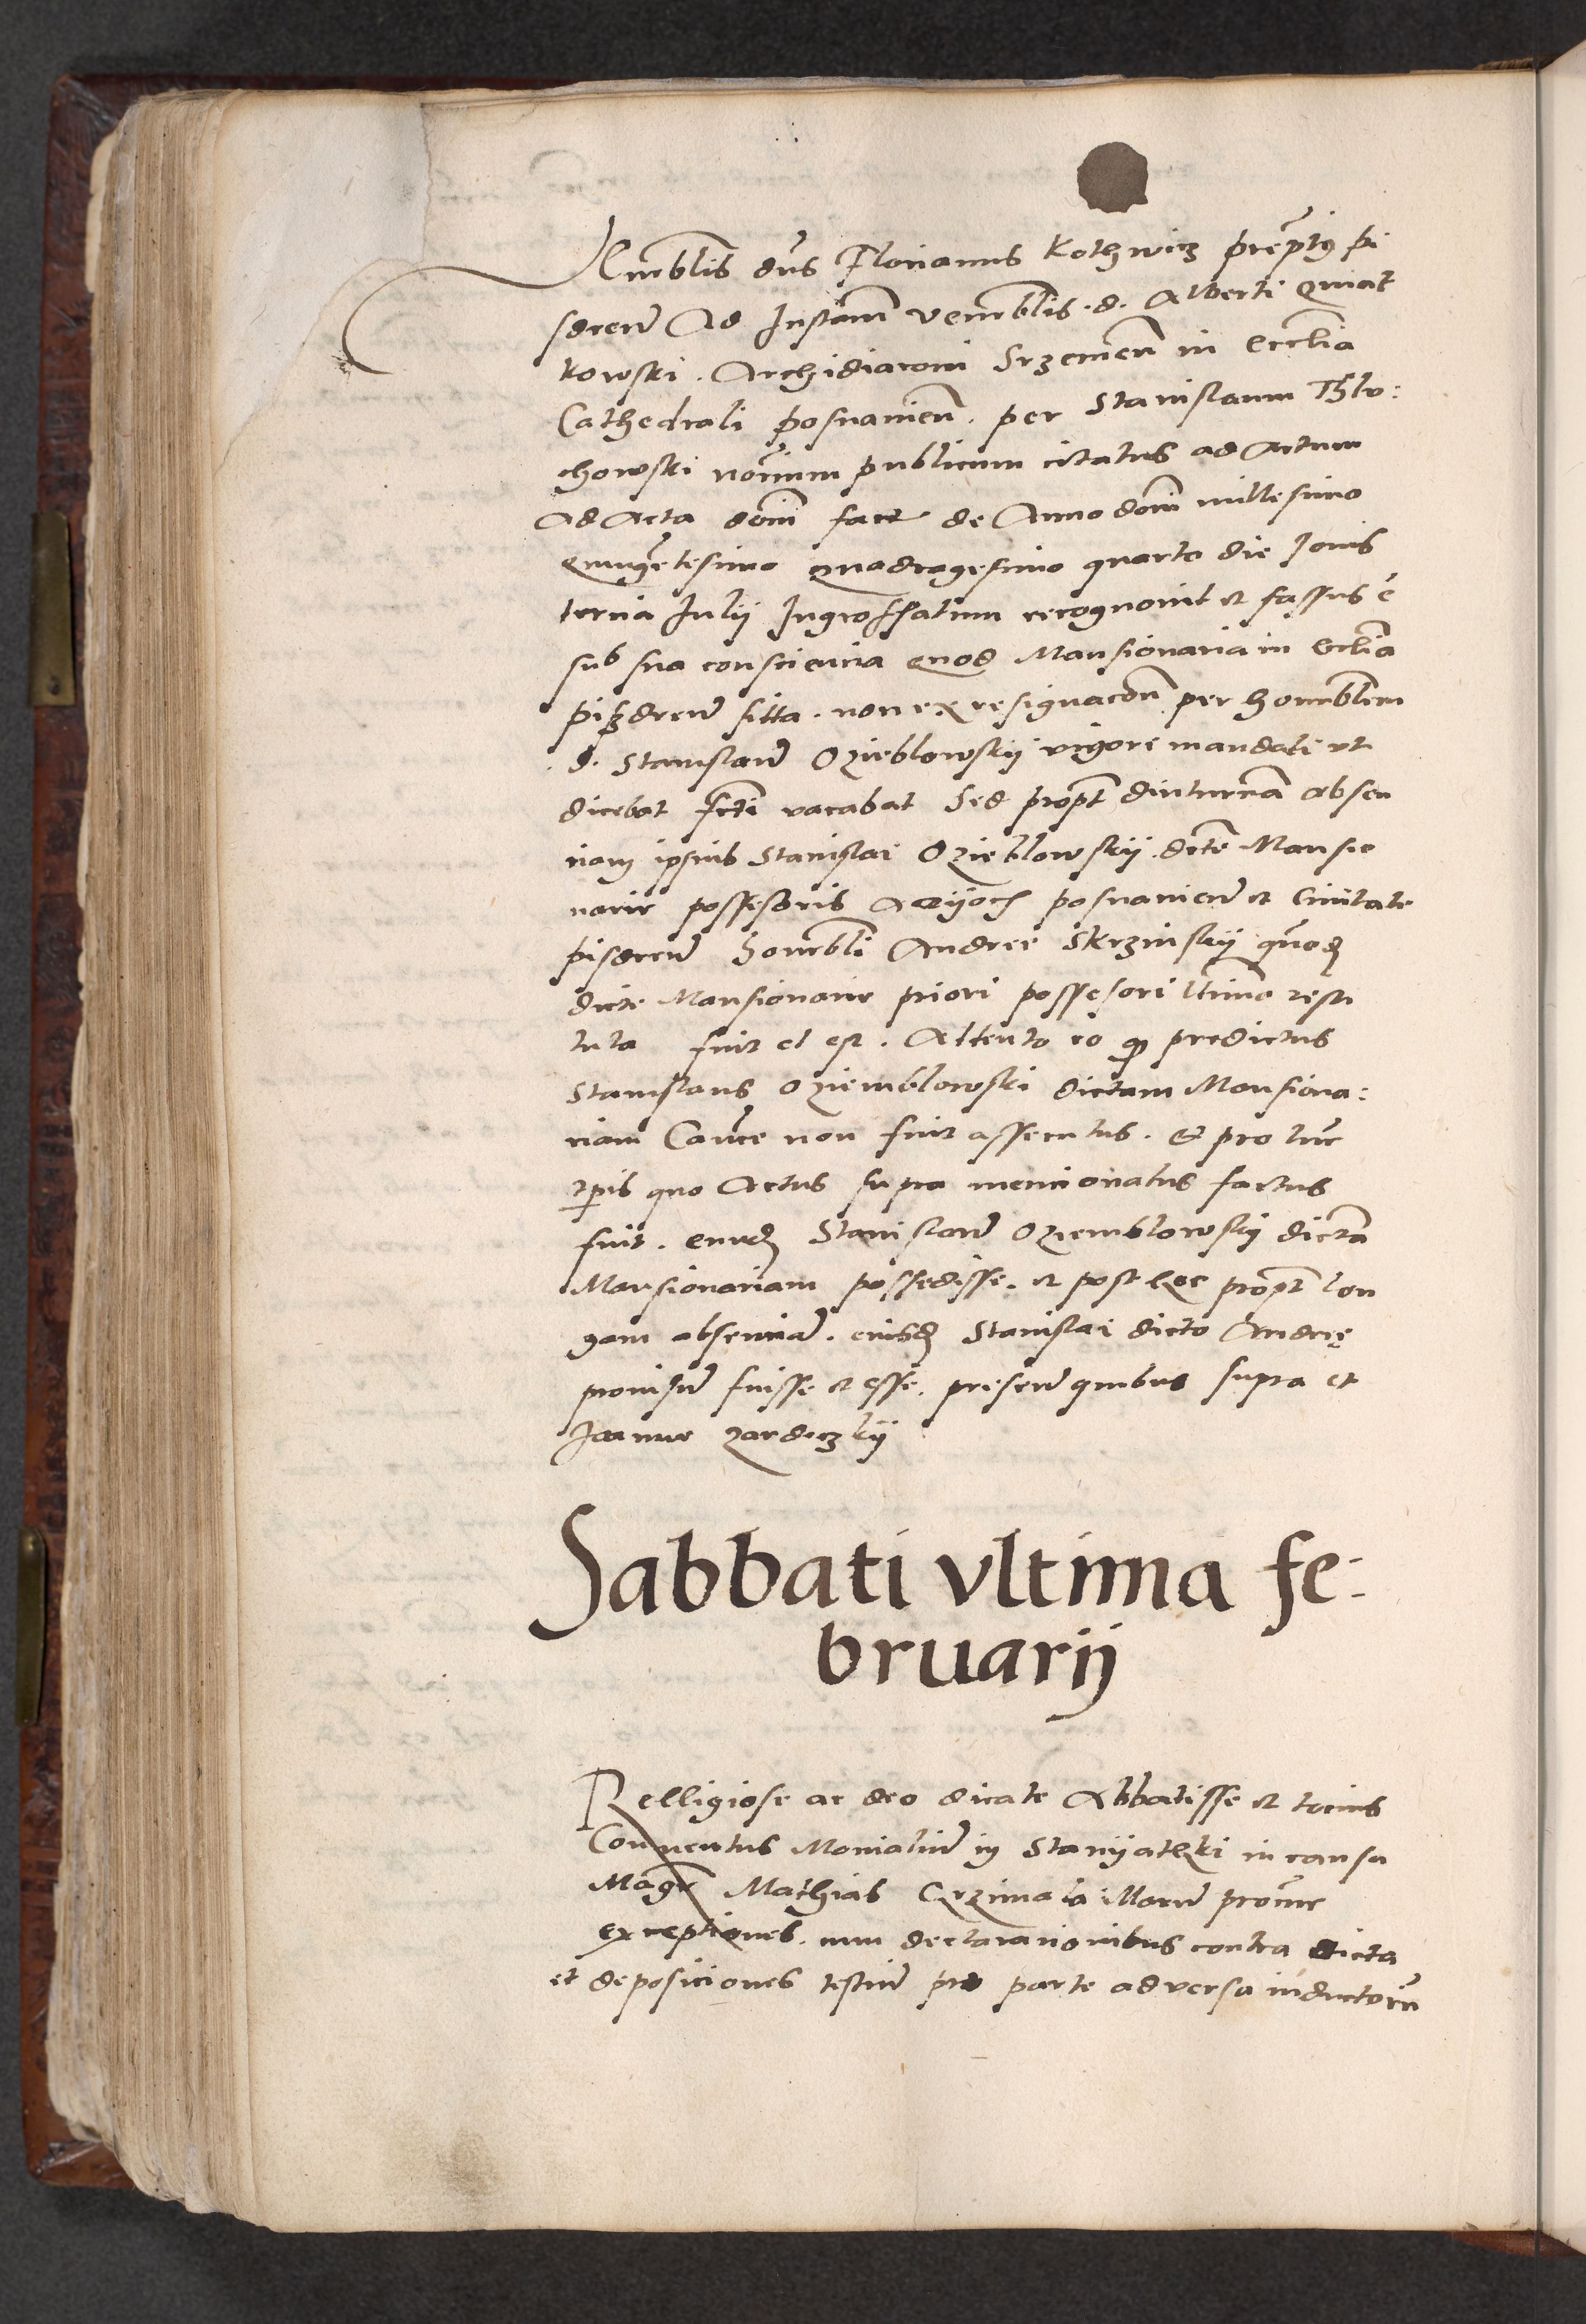 Venerblis dns Florianus Kothwicz prepts pi
sdren Ad Instam venerblis . d . Alberti Quiat
kowski . Archidiaconi Srzemen in Ecclia
Cathedrali posnanien . per Stanislaum Thlo:
chowski norium publicum citatus ad Actum
ad Acta domi fact de Anno domi millesimo
quingetesimo quadragesimo quarto die Jovis
tercia Julii Ingrossatum recognovit et fassus e
sub sua consciencia quod Mansionaria in Ecclia
pisdren sitta . non ex resignacon per honorblem
. d . Stanislau Ozieblowskij vigore mandati ut
dicebat fcti vacabat Sed propt diuturna absen
ciam ipsius Stanislai Ozieblowskij dicte Mansio
narie possessoris posnanien et Civitate
pisdren honorbli Andree Skrzinskij
dicte Mansionarie priori possesori ltime resti
tuta fuit et est . Attento eo qp predictus
Stanislaus Oziemblowski dictam Mansiona:
riam Canice non fuit assecutus . et pro tunc
tpis quo Actus supra mencionatus factus
fuit . eund Stanislau Oziemblowskij dicta
Mansionariam possedisse . et post hec propt lon
gam absencia . eiusd Stanislai dicto Andreę
provisu fuisse et esse . presen quibus supra et
Joanne zardeczkij
Sabbati vltima fe-
bruarij
Relligiose ac deo dicate Abbatisse et tocius
Conventus Monialiu in Stanijathki in causa
Magr Mathias Crzimala illaru procur
exceptiones . cum declaracionibus contra dicta
et deposiciones testiu pro parte adversa inductoru